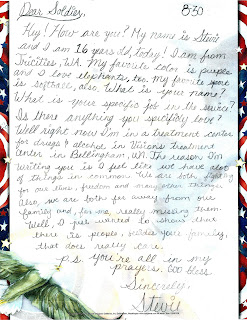 Dear Soldier,
830
Hey! How are you? My name is Stevie
and I am 16 years old, today! I am from
Tricities, WA. My favorite color is purple
and I love elephants, too. My favorite sport
is softball, also. What is your name?
What is your specific job in the service?
Is there anything you specificly love?
Well right now I'm in a treatment center
for drugs & alcohol in Visions treatment
center in Bellingham, WA. The reason I'm
writing you is I feel like we have alot
of things in common. We are both fighting
for our lives, freedom and many other things.
Also, we are both far away from our
family and, for me, really missing them.
Well, I just wanted to share that
there is people, besides your family,
that does really care.
p.s. you're all in my
prayers. God bless.
Sincerely,
Stevie